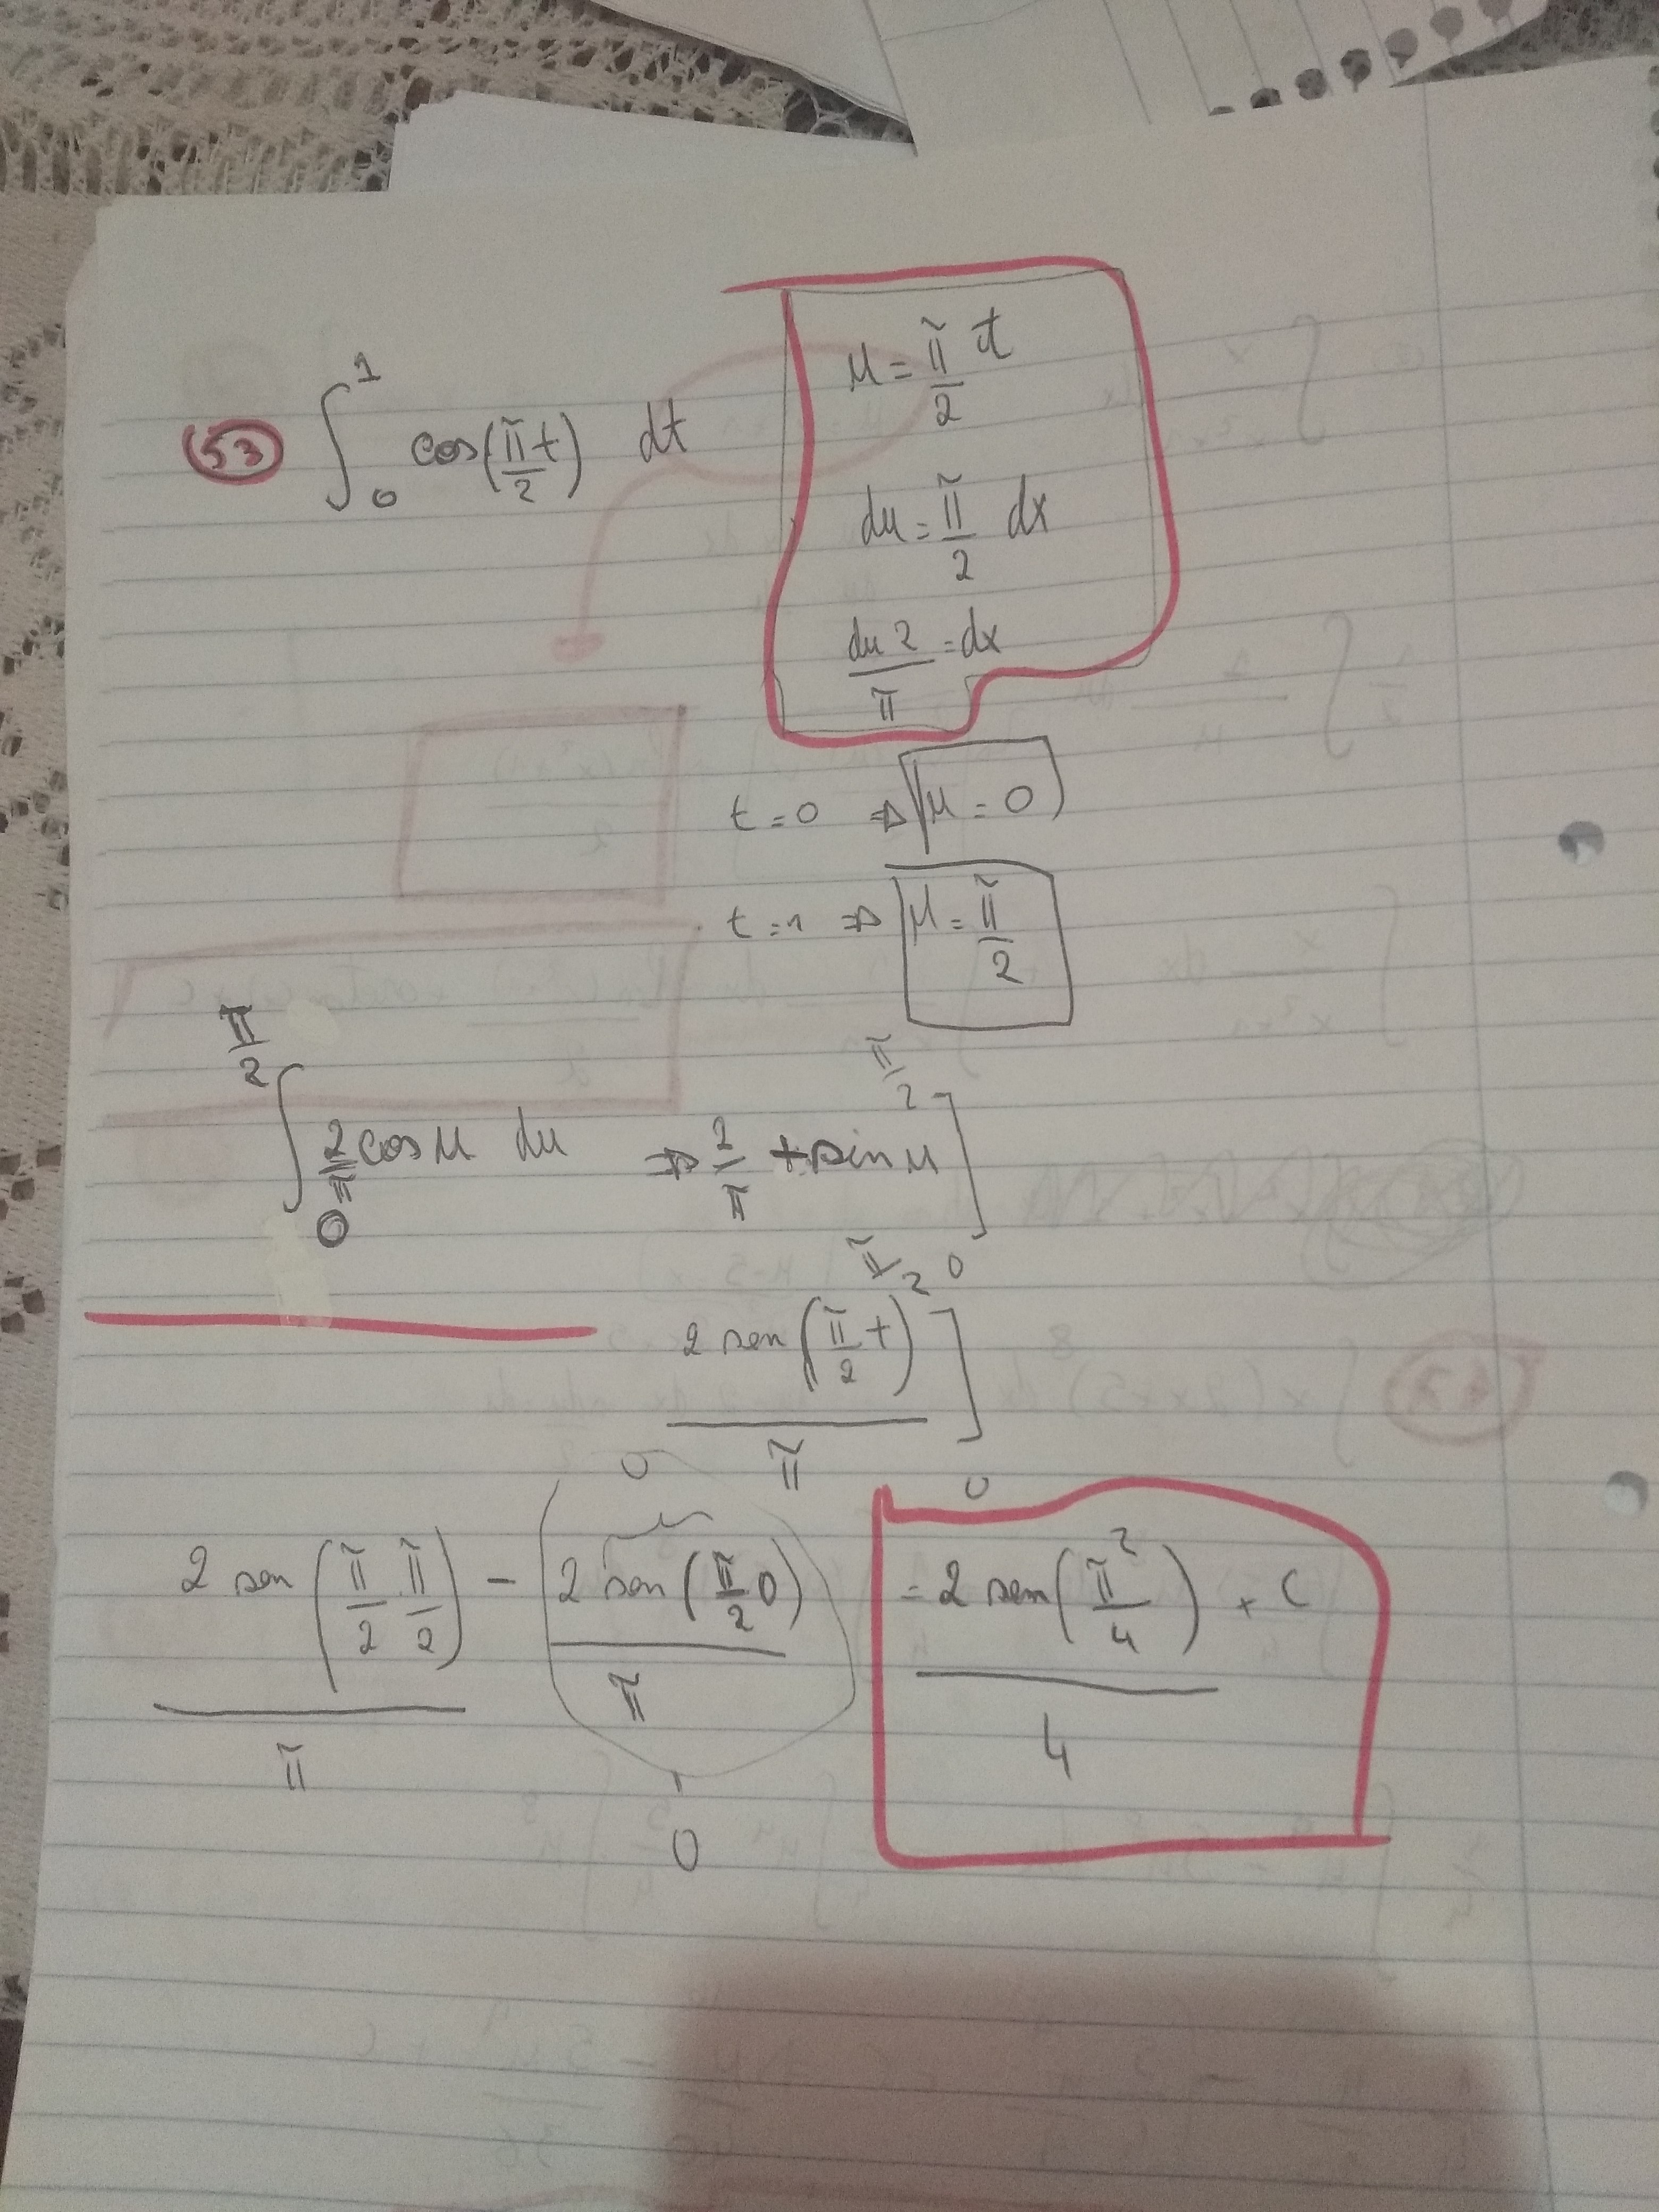 53 ∫₀¹ cos(π/2 t) dt
μ = π/2 t
du = π/2 dx
du 2/π = dx
t = 0 ⇒ μ = 0
t = 1 ⇒ μ = π/2
∫₀^(π/2) 2/π cos μ du ⇒ 2/π + sin μ ]₀^(π/2)
2 sen(π/2 t)/π ]₀^(π/2)
2 sen(π/2 · π/2)/π − 2 sen(π/2 0)/π = 2 sen(π²/4)/4 + C
0
0